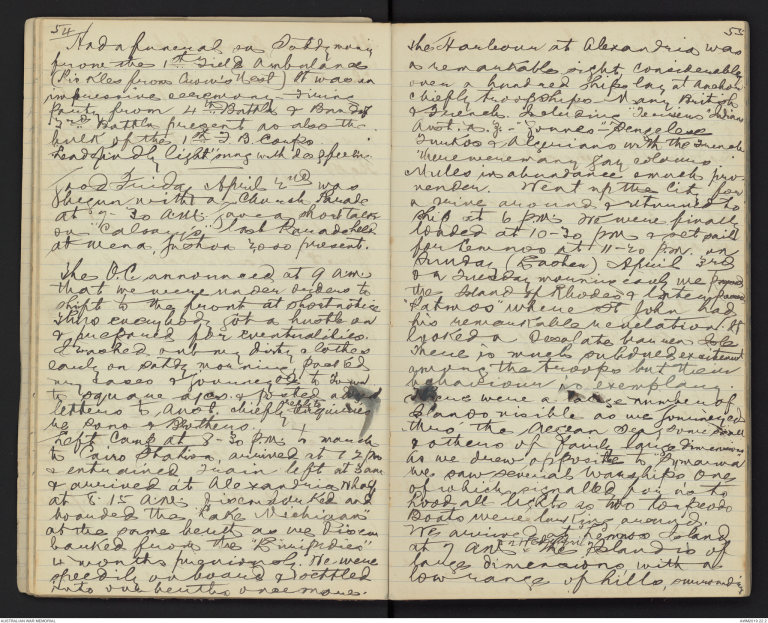 54
Had a funeral on Satdy morning
from the 1st Field Ambulance
It was an
impressive ceremony - Firing
Party from 4th Battn & Band of
3rd Battn present as also the
bulk of the 1st F. B. Corps
Lead Kindly light" sung with deep feeling.
Good Friday April 2nd was
begun with a Church Parade
at 7-30 AM. gave a short talk
on "Calvary's" last Parade held
at Mena, fashion 3000 present.
The O.C. announced at 9 AM
that we were under orders to
shift to the front at short notice
Thro everybody got a hustle on
& prepared for eventualities.
I washed out my dirty clothes
early on Satdy morning, packed
my cases & journeyed to town
to square affairs & posted
letters to Aust. chiefly replies to enquiries
re sons & Brothers.
Left Camp at 8-30 PM, & march
to Cairo Station, arrived at 12 PM
& entrained train left at 3 AM
& arrived at Alexandria Wharf
at 8.15 AM, disembarked and
boarded the "Lake Michigan"
at the same berth as we disem
barked from the "Euripides"
4 months previously. We were
speedily on board & settled
into our berths once more.
55
The Harbour at Alexandria was
a remarkable sight considerably
over a hundred ships lay at anchor
chiefly troopships. Many British
& French. Including Terriers Indian
Aust. N.Z. - Zouaves - Sengelese
Turkos & Algerians with the French
There were many gay colours.
Mules in abundance & much pro-
vender. Went up the City for
a drive around & returned to
ship at 6 PM. We were finally
loaded at 10-30 PM & set sail
for Lemnos at 11-30 PM. on
Sunday (Easter) April 3rd
On Tuesday morning early we passed
the Island of Rhodes & later passed
"Patmos" where St John had
his remarkable revelation. It
looked a desolate barren Isle
There is much subdued excitement
among the troops but their
behaviour is exemplary
There were a large number of
Islands visible as we journeyed
thro' the Aegean Sea, some small
& others of fairly large dimensions
As we drew opposite to Smyrna
we saw several Warships one
of which signalled for us to
hood all lights as two torpedo
Boats were lurking around.
We arrived Lemnos Island
at 7 AM. The Island is of
large dimensions with a
low range of hills, surrounding
AUSTRALIAN WAR MEMORIAL